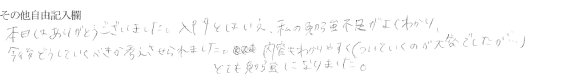 その他自由記入欄
本日はありがとうございました。入門とはいえ、私の勉強不足がよくわかり、
今後どうしていくべきか考えさせられました。内容もわかりやすく(ついていくのが大変でしたが…)
とても勉強になりました。